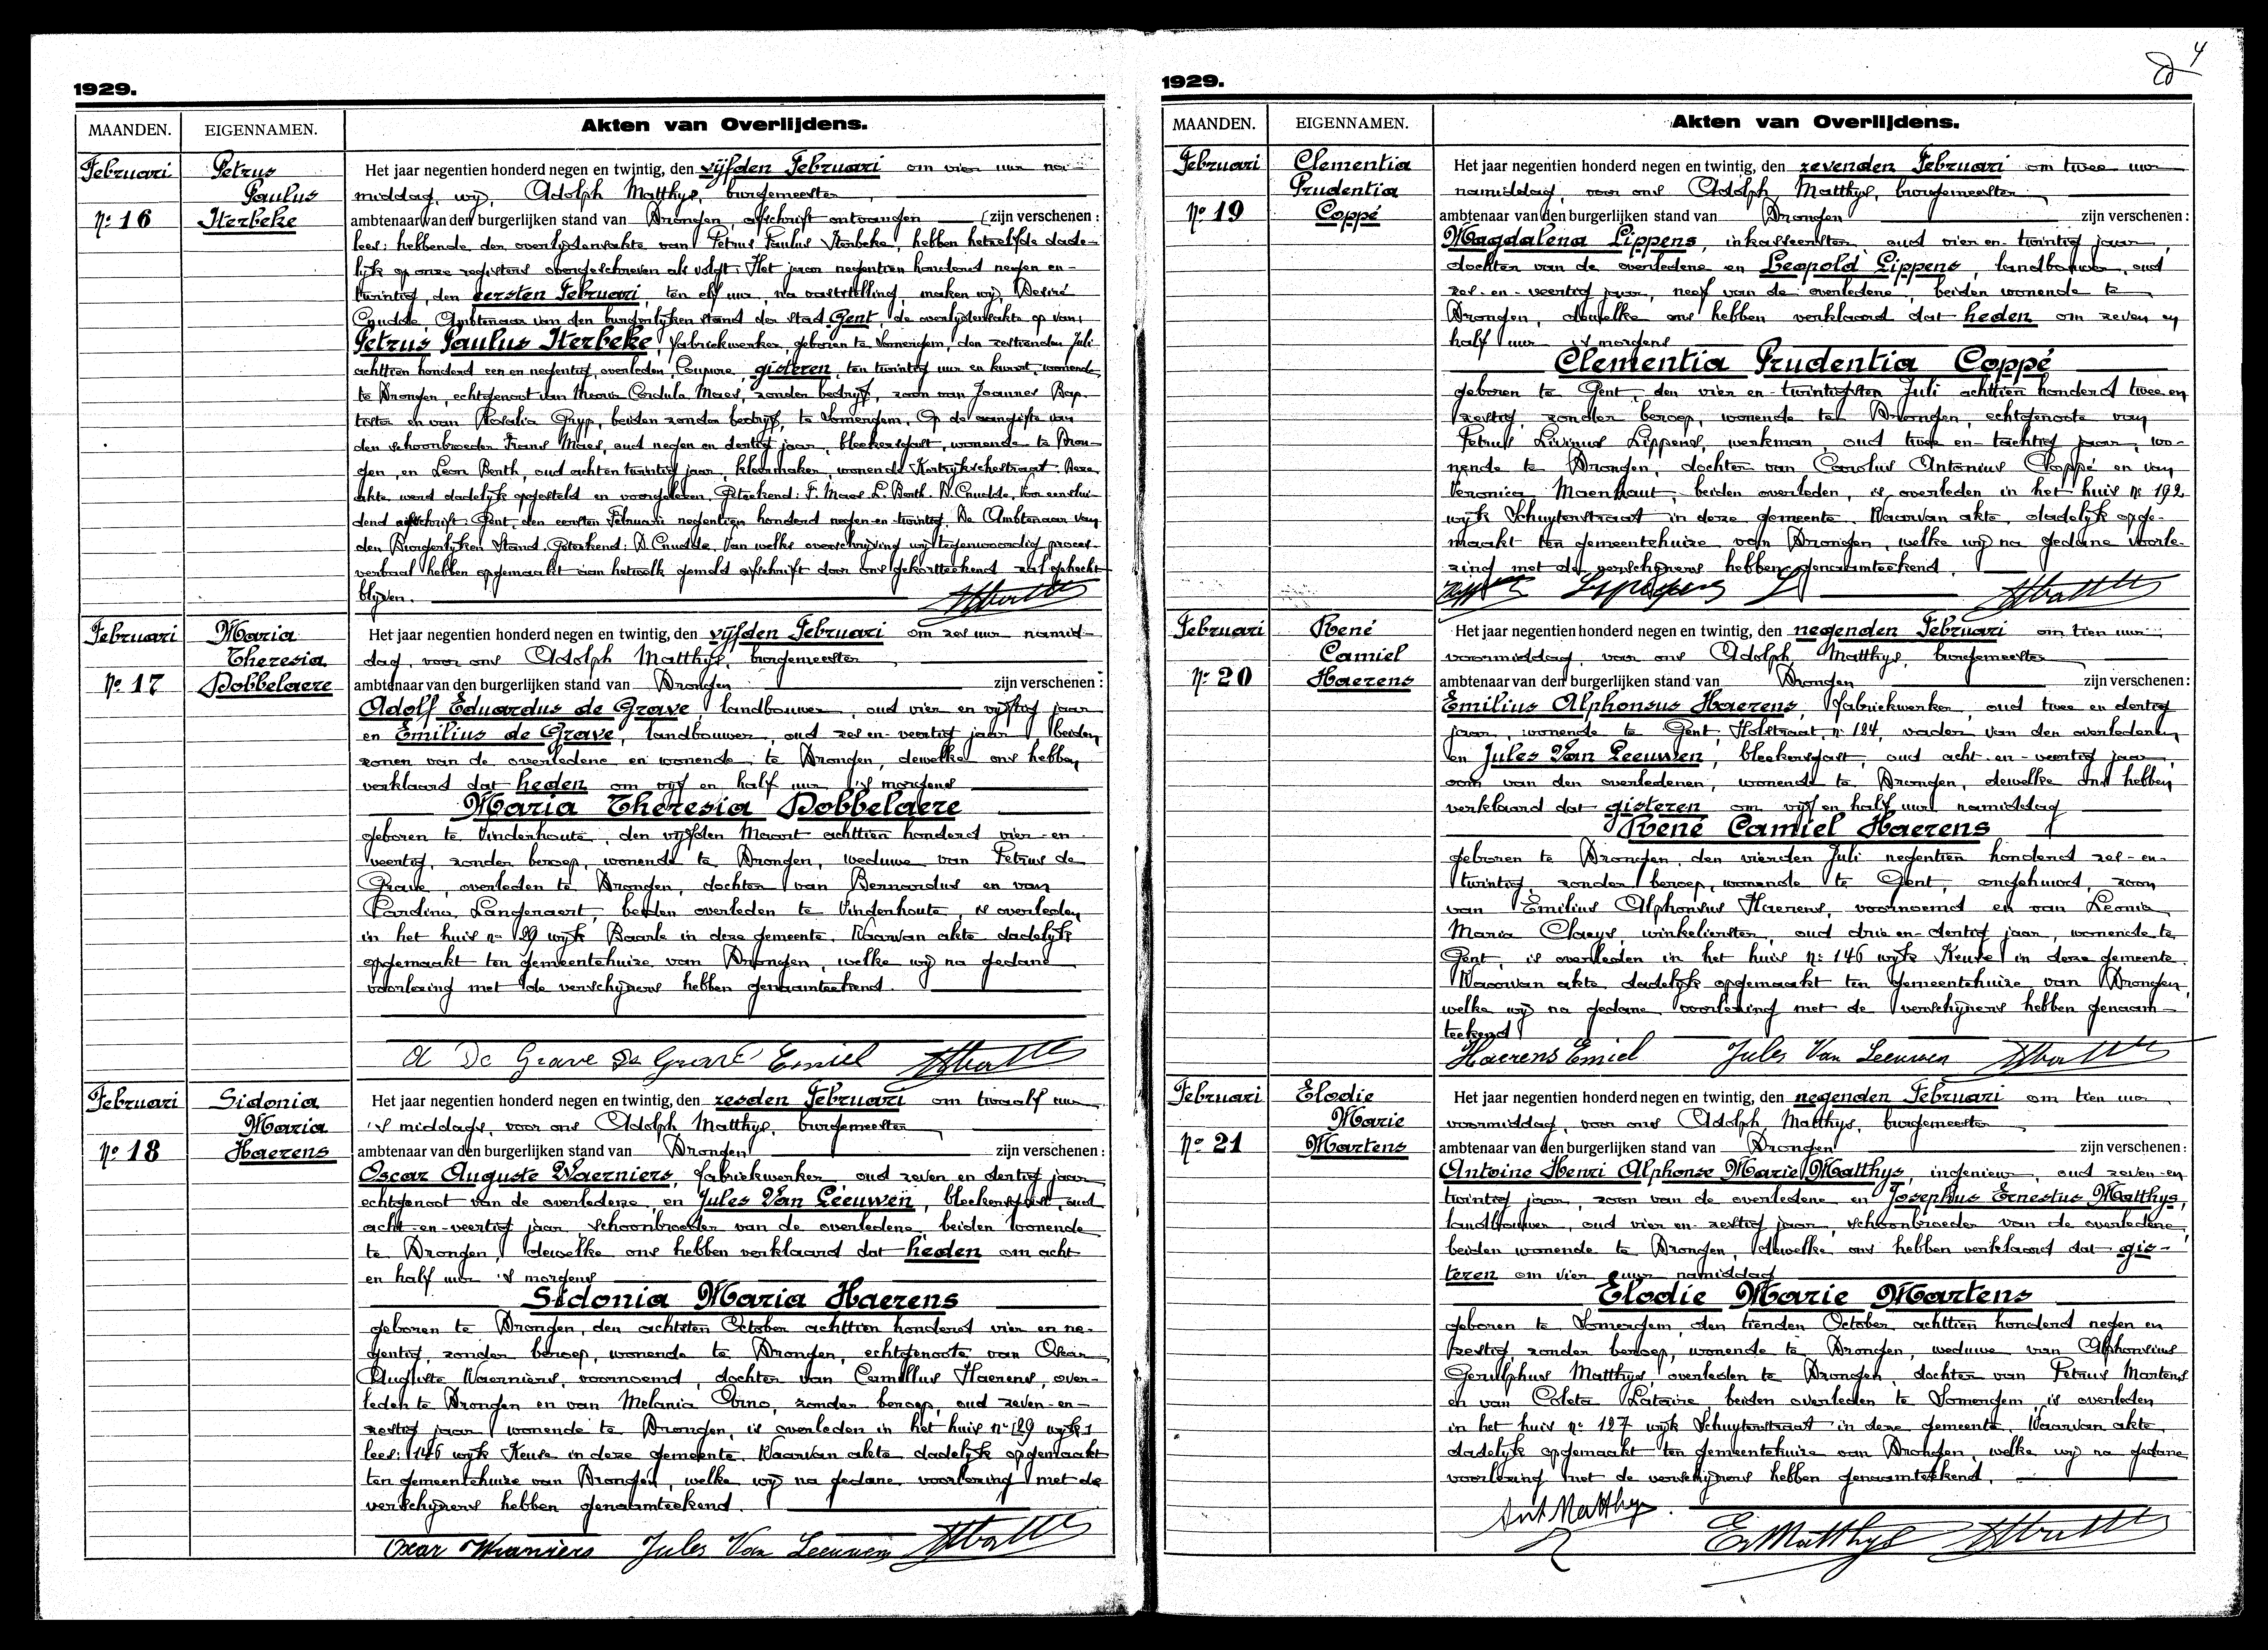 1929.
MAANDEN. EIGENNAMEN. Akten van Overlijdens.
Februari Petrus Het jaar negentien honderd negen en twintig, den vijfden Februari om vier uur na-
Paulus middag, wij, Adolph Matthys, burgemeester
No 16 Sterbeke ambtenaar van den burgerlijken stand van Drongen, afschrift ontvangen (zijn verschenen:
lees: hebbende der overlijdensakte van Petrus Paulus Sterbeke, hebben hetzelfde dade-
lijk op onze registers overgeschreven als volgt: Het jaar negentien honderd negen en-
twintig, den eersten Februari, ten elf uur, na vaststelling, maken wij, Desiré
Cnudde, Ambtenaar van den burgerlijken stand der stad Gent, de overlijdensakte op van:
Petrus Paulus Sterbeke, fabriekwerker, geboren te Somergem, den zestienden Juli
achttien honderd een en negentig, overleden, Coupure, gisteren, ten twintig uur en kwart, wonende
te Drongen, echtgenoot van Maria Cordula Maes, zonder bedrijf, zoon van Joannes Bap-
tista en van Rosalia Gryp, beiden zonder bedrijf, te Somergem. Op de aangifte van
den schoonbroeder Frans Maes, oud negen en dertig jaar, bleekersgast, wonende te Dron-
gen, en Leon Benth, oud acht en twintig jaar, kleermaker, wonende Kortrijkschestraat. Deze
akte werd dadelijk opgesteld en voorgelezen. Geteekend: F. Maes L. Benth. D. Cnudde. Voor eenslui-
dend afschrift: Gent, den eersten Februari negentien honderd negen-en-twintig. De Ambtenaar van
den Burgerlijken Stand. Geteekend: D. Cnudde. Van welke overschrijving wij tegenwoordig proces-
verbaal hebben opgemaakt aan hetwelk gemeld afschrift door ons gekortteekend zal gehecht
blijven.
Februari Maria Het jaar negentien honderd negen en twintig, den vijfden Februari om zes uur namid-
Theresia dag, voor ons Adolph Matthys, burgemeester
No 17 Dobbelaere ambtenaar van den burgerlijken stand van Drongen zijn verschenen:
Adolf Eduardus de Grave, landbouwer, oud vier en vijftig jaar
en Emilius de Grave, landbouwer, oud zes en-veertig jaar, beiden
zonen van de overledene en wonende te Drongen, dewelke ons hebben
verklaard dat heden om vijf en half uur 's morgens
Maria Theresia Dobbelaere
geboren te Vinderhoute, den vijfden Maart achttien honderd vier-en-
veertig, zonder beroep, wonende te Drongen, weduwe van Petrus de
Grave, overleden te Drongen, dochter van Bernardus en van
Carolina Langeraert, beiden overleden te Vinderhoute, is overleden
in het huis no 29 wijk Baarle in deze gemeente. Waarvan akte dadelijk
opgemaakt ten gemeentehuize van Drongen, welke wij na gedane
voorlezing met de verschijners hebben genaamteekend.
A De Grave De Grave Emiel
Februari Sidonia Het jaar negentien honderd negen en twintig, den zesden Februari om twaalf uur
Maria 's middags, voor ons Adolph Matthys, burgemeester
No 18 Haerens ambtenaar van den burgerlijken stand van Drongen zijn verschenen:
Oscar Auguste Waerniers, fabriekwerker, oud zeven en dertig jaar
echtgenoot van de overledene, en Jules Van Leeuwen, bleekersgast, oud
acht-en-veertig jaar, schoonbroeder van de overledene, beiden wonende
te Drongen, dewelke ons hebben verklaard dat heden om acht
en half uur 's morgens
Sidonia Maria Haerens
geboren te Drongen, den achtsten October achttien honderd vier en ne-
gentig, zonder beroep, wonende te Drongen, echtgenoote van Oscar
Auguste Waerniers, voornoemd, dochter van Camillus Haerens, over-
leden te Drongen en van Melania Arno, zonder beroep, oud zeven-en-
zestig jaar, wonende te Drongen, is overleden in het huis no 129 wijk:
lees: 146 wijk Keuse in deze gemeente. Waarvan akte dadelijk opgemaakt
ten gemeentehuize van Drongen, welke wij na gedane voorlezing met de
verschijners hebben genaamteekend.
Oscar Waerniers Jules Van Leeuwen
4
1929.
MAANDEN. EIGENNAMEN. Akten van Overlijdens.
Februari Clementia Het jaar negentien honderd negen en twintig, den zevenden Februari om twee uur
Prudentia namiddag, voor ons Adolph Matthys, burgemeester
No 19 Coppé ambtenaar van den burgerlijken stand van Drongen zijn verschenen:
Magdalena Lippens, inkasseerster, oud vier en-twintig jaar,
dochter van de overledene en Leopold Lippens, landbouwer, oud
zes-en-veertig jaar, neef van de overledene, beiden wonende te
Drongen, dewelke ons hebben verklaard dat heden om zeven en
half uur 's morgens
Clementia Prudentia Coppé
geboren te Gent, den vier en-twintigsten Juli achttien honderd twee en
zestig, zonder beroep, wonende te Drongen, echtgenoote van
Petrus Livinus Lippens, werkman, oud twee en-tachtig jaar, wo-
nende te Drongen, dochter van Carolus Antonius Coppé en van
Veronica Maenhaut, beiden overleden, is overleden in het huis no 192
wijk Schuytenstraat in deze gemeente. Waarvan akte, dadelijk opge-
maakt ten gemeentehuize van Drongen, welke wij na gedane voorle-
zing met de verschijners hebben genaamteekend.
Februari René Het jaar negentien honderd negen en twintig, den negenden Februari om tien uur
Camiel voormiddag, voor ons Adolph Matthys, burgemeester
No 20 Haerens ambtenaar van den burgerlijken stand van Drongen zijn verschenen:
Emilius Alphonsus Haerens, fabriekwerker, oud twee en dertig
jaar, wonende te Gent, Holstraat, no 124, vader van den overledene,
en Jules Van Leeuwen, bleekersgast, oud acht-en-veertig jaar,
oom van den overledenen, wonende te Drongen, dewelke ons hebben
verklaard dat gisteren om vijf en half uur namiddag
René Camiel Haerens
geboren te Drongen, den vierden Juli negentien honderd zes-en-
twintig, zonder beroep, wonende te Gent, ongehuwd, zoon
van Emilius Alphonsus Haerens, voornoemd en van Leonia
Maria Claeys, winkelierster, oud drie en-dertig jaar, wonende te
Gent, is overleden in het huis no: 146 wijk Keuse in deze gemeente.
Waarvan akte dadelijk opgemaakt ten gemeentehuize van Drongen,
welke wij na gedane voorlezing met de verschijners hebben genaam-
teekend
Haerens Emiel Jules Van Leeuwen
Februari Elodie Het jaar negentien honderd negen en twintig, den negenden Februari om tien uur
Marie voormiddag, voor ons Adolph Matthys, burgemeester
No 21 Martens ambtenaar van den burgerlijken stand van Drongen zijn verschenen:
Antoine Henri Alphonse Marie Matthys, ingenieur, oud zeven-en
twintig jaar, zoon van de overledene en Josephus Ernestus Matthys,
landbouwer, oud vier en-zestig jaar, schoonbroeder van de overledene,
beiden wonende te Drongen, dewelke ons hebben verklaard dat gis-
teren om vier uur namiddag
Elodie Marie Martens
geboren te Somergem, den tienden October achttien honderd negen en
zestig, zonder beroep, wonende te Drongen, weduwe van Alphonsius
Gerulphus Matthys, overleden te Drongen, dochter van Petrus Martens
en van Coleta Lataire, beiden overleden te Somergem, is overleden
in het huis no 127 wijk Schuytenstraat in deze gemeente. Waarvan akte
dadelijk opgemaakt ten gemeentehuize van Drongen, welke wij na gedane
voorlezing met de verschijners hebben genaamteekend.
Ant Matthys.
Er Matthys